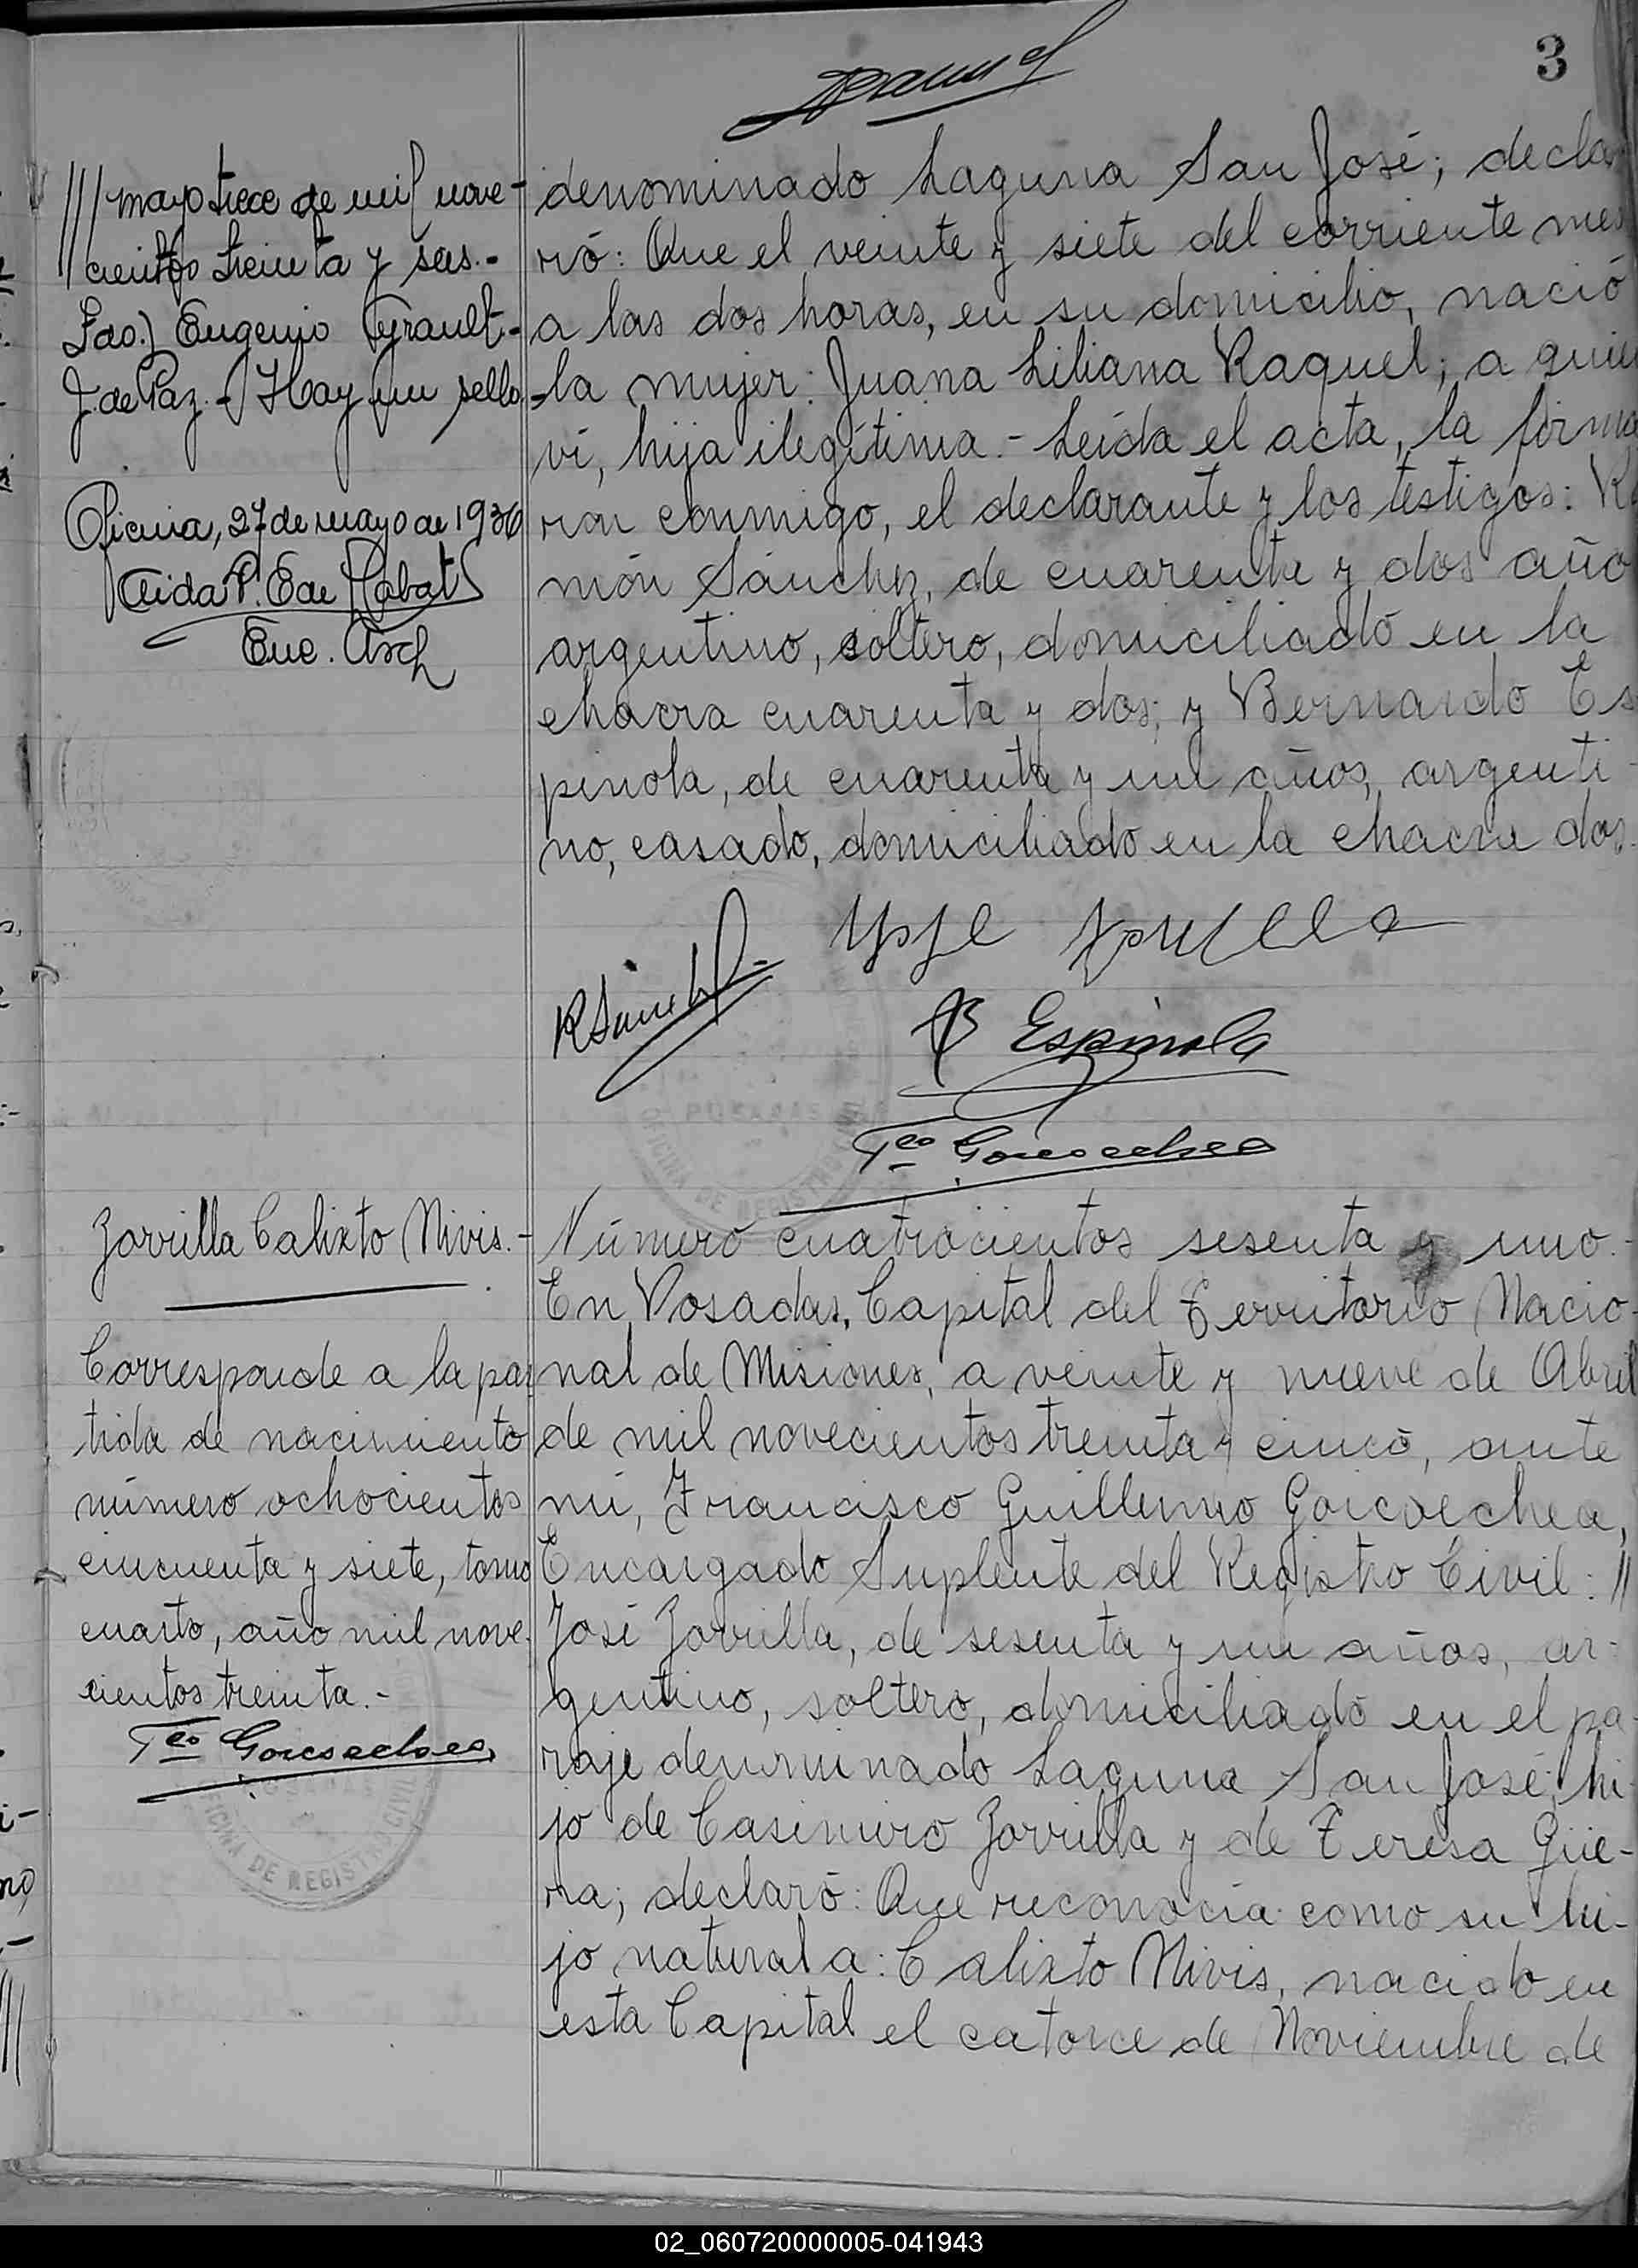 3
///mayo trece de mil nove-
cientos treinta y seis.-
Fdo.) Eugenio Gyrault-
J. de Paz.-/ Hay un sello.-
Oficina, 27 de mayo de 1936
Aida P. E de Labat
Enc. Arch
denominado Laguna San José; decla
ró: Que el veinte y siete del corriente mes
a las dos horas, en su domicilio, nació
la mujer: Juana Liliana Raquel; a quien
vi, hija ilegítima.- Leída el acta, la firma
ron conmigo, el declarante y los testigos: Ra
món Sánchez, de cuarenta y dos año
argentino, soltero, domiciliado en la
chacra cuarenta y dos; y Bernardo Es
pinola, de cuarenta y un años, argenti-
no, casado, domiciliado en la chacra dos.
R Sánchez
B Espinola
Fco Goicoechea
POSADAS
OFICINA DE REGISTRO CIVIL
Zorrilla Calixto Nivis.-
Corresponde a la par
tida de nacimiento
número ochocientos
cincuenta y siete, tomo
cuarto, año mil nove-
cientos treinta.-
Fco Goicoechea
OFICINA DE REGISTRO CIVIL
Número cuatrocientos sesenta y uno.-
En Posadas, Capital del Territorio Nacio-
nal de Misiones, a veinte y nueve de Abril
de mil novecientos treinta y cinco, ante
mi, Francisco Guillermo Goicoechea,
Encargado Suplente del Registro Civil: //
José Zorrilla, de sesenta y un años, ar-
gentino, soltero, domiciliado en el pa-
raje denominado Laguna San José; hi-
jo de Casimiro Zorrilla y de Teresa Güe-
rra; declaró: Que reconocía como su hi-
jo natural a: Calixto Nivis, nacido en
esta Capital el catorce de Noviembre de
02_060720000005-041943